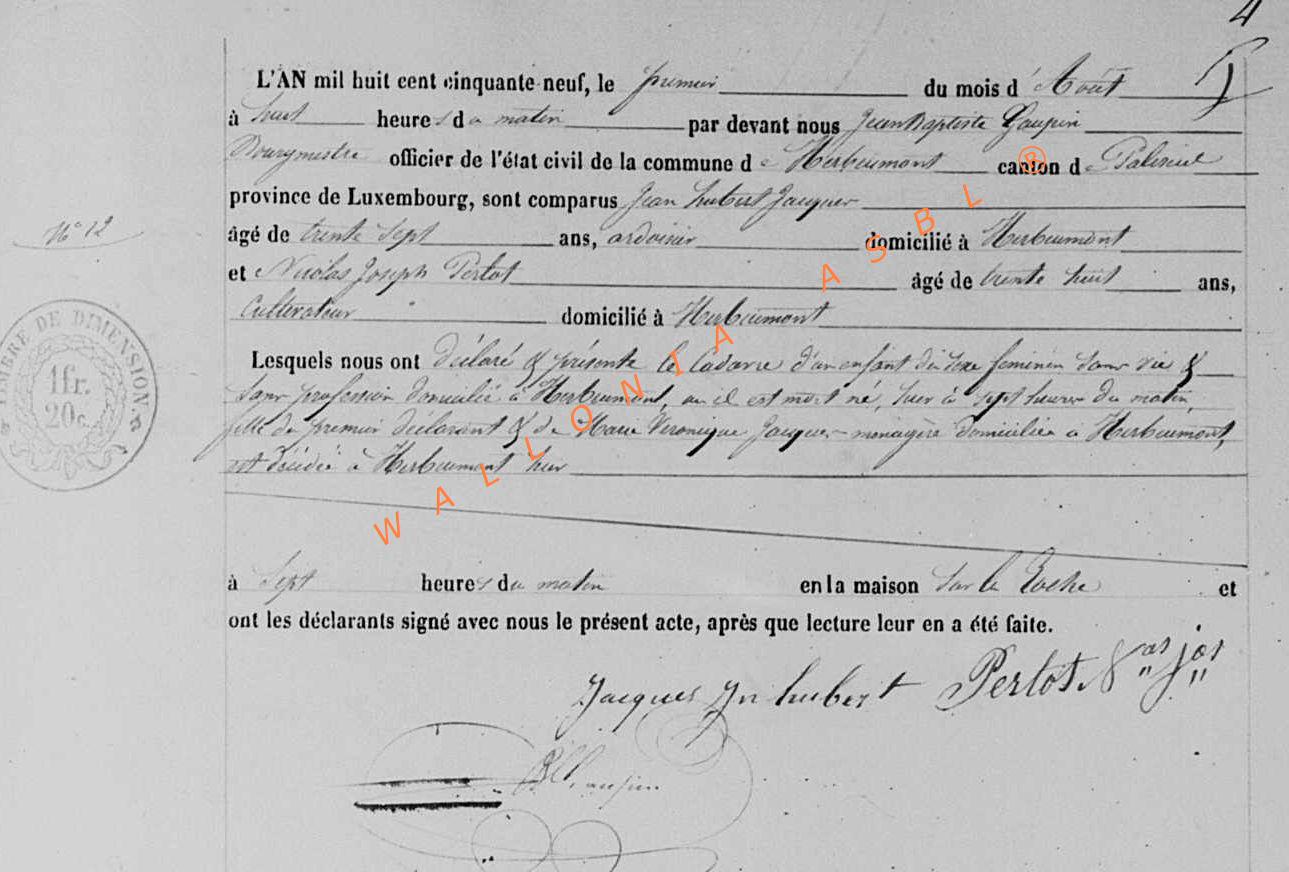 4
L'AN mil huit cent cinquante-neuf, le premier du mois d'Août
à huit heures du matin par devant nous Jean Baptiste
Bourgmestre officier de l'état civil de la commune de Herbeumont canton de Paliseul
province de Luxembourg, sont comparus Jean hubert Jacques
N° 12
âgé de trente sept ans, ardoisier domicilié à Herbeumont
et Nicolas Joseph Pertot âgé de trente huit ans,
Cultivateur domicilié à Herbeumont
Lesquels nous ont déclaré & présenté le Cadavre d'un enfant du sexe feminin sans vie &
sans profession domicilié à Herbeumont, où il est mort né, hier à sept heures du matin,
fille du premier déclarant & de Marie Veronique Jacques menagère domiciliée à Herbeumont,
est décédée à Herbeumont hier
à Sept heures du matin en la maison Sur la Roche et
ont les déclarants signé avec nous le présent acte, après que lecture leur en a été faite.
Jacques Jn hubert Pertot Nas Jos
TIMBRE DE DIMENSION
1 fr.
20 c.
WALLONIA ASBL ®